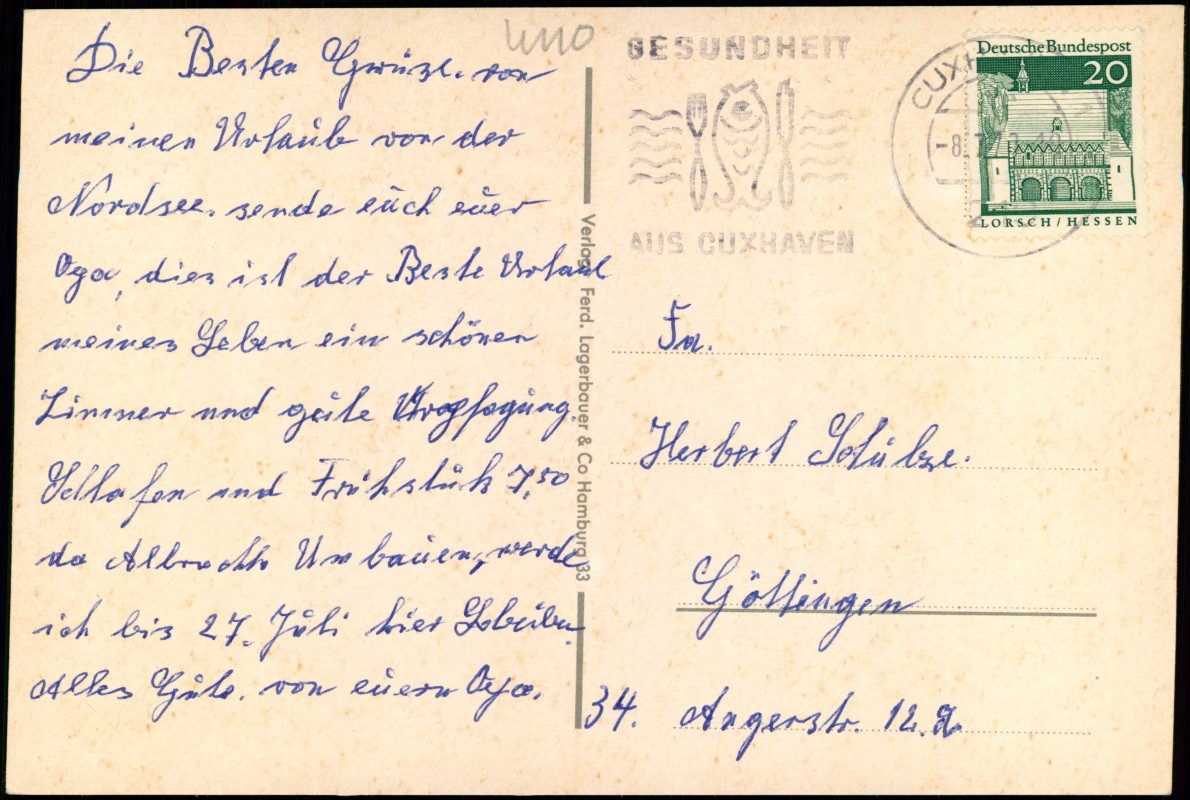 Die Besten Grüße. von
meinen Urlaub von der
Nordsee. sende euch euer
Opa, dies ist der Beste Urlaub
meines Leben ein schönen
Zimmer und gute Verpflegung.
Schlafen und Frühstük 7,50
da Albrechts Umbauen, werde
ich bis 27. Juli hier
Alles Gute. von euern Opa.
Verlag Ferd. Lagerbauer & Co Hamburg 33
GESUNDHEIT
AUS CUXHAVEN
Deutsche Bundespost
20
LORSCH / HESSEN
Fa.
Herbert Schulze.
Göttingen
34. Angerstr. 12.a